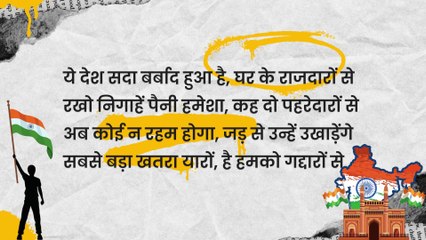 ये देश सदा बर्बाद हुआ है, घर के राजदारों से
रखो निगाहें पैनी हमेशा, कह दो पहरेदारों से
अब कोई न रहम होगा, जड़ से उन्हें उखाड़ेंगे
सबसे बड़ा खतरा यारों, है हमको गद्दारों से